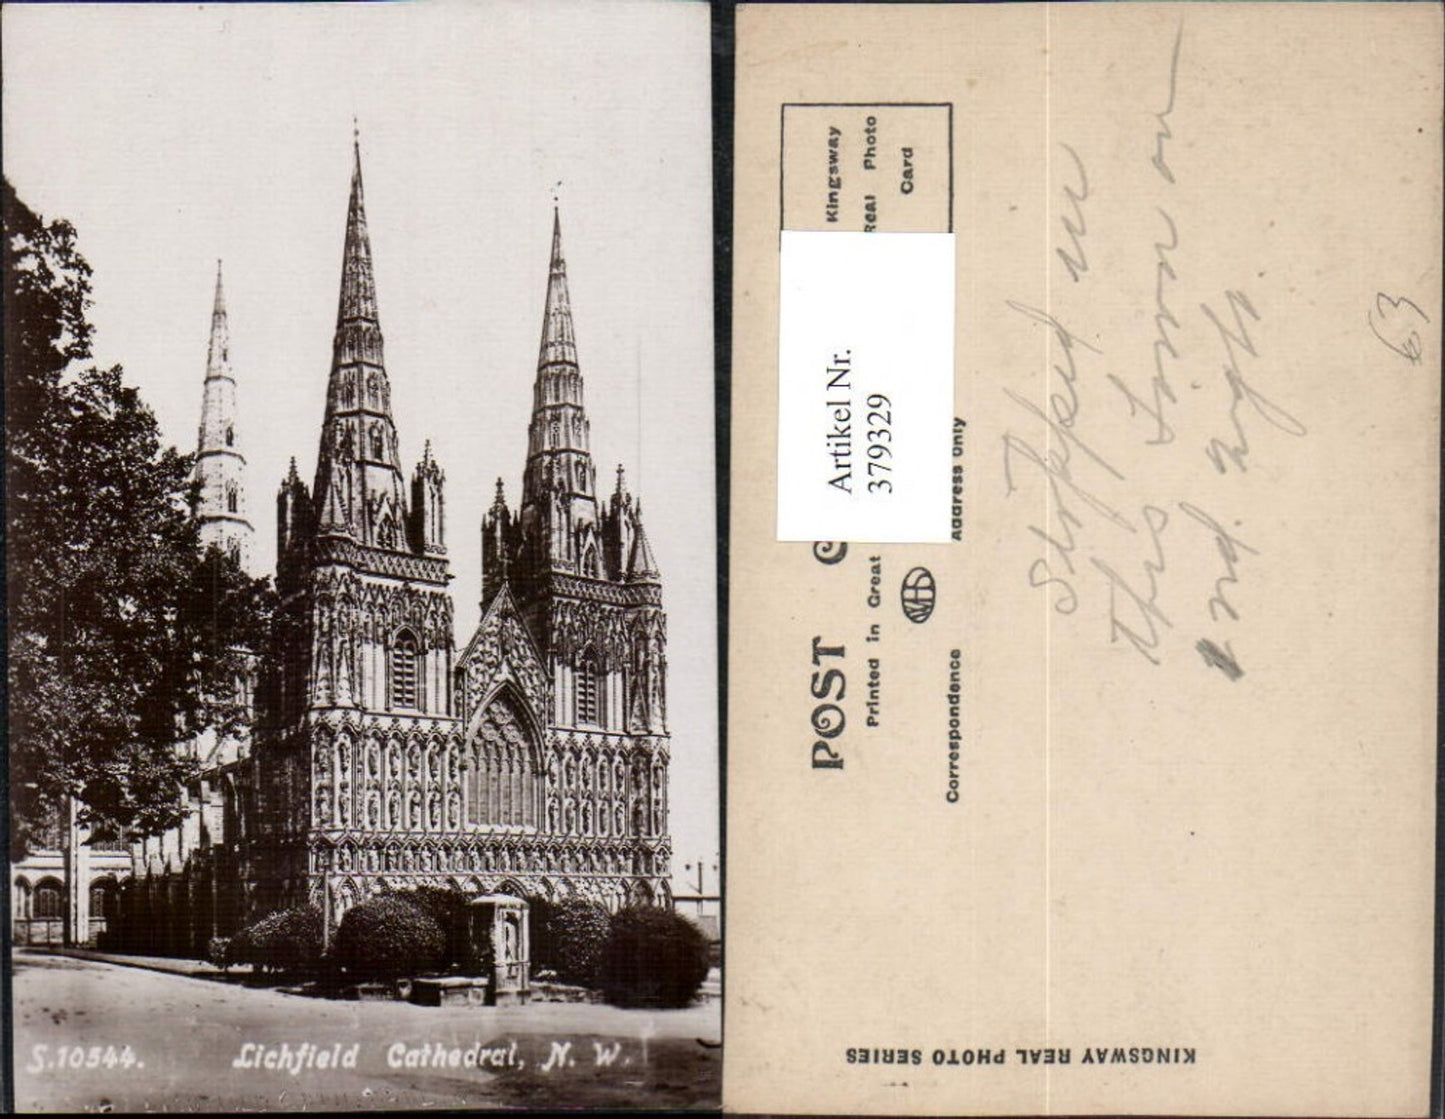 S.10544. Lichfield Cathedral, N. W.
Kingsway
Real Photo
Card
Artikel Nr.
379329
POST C
Printed in Great
WHS
Correspondence
Address only
Stopped in
this Town on
2nd. night.
63
KINGSWAY REAL PHOTO SERIES